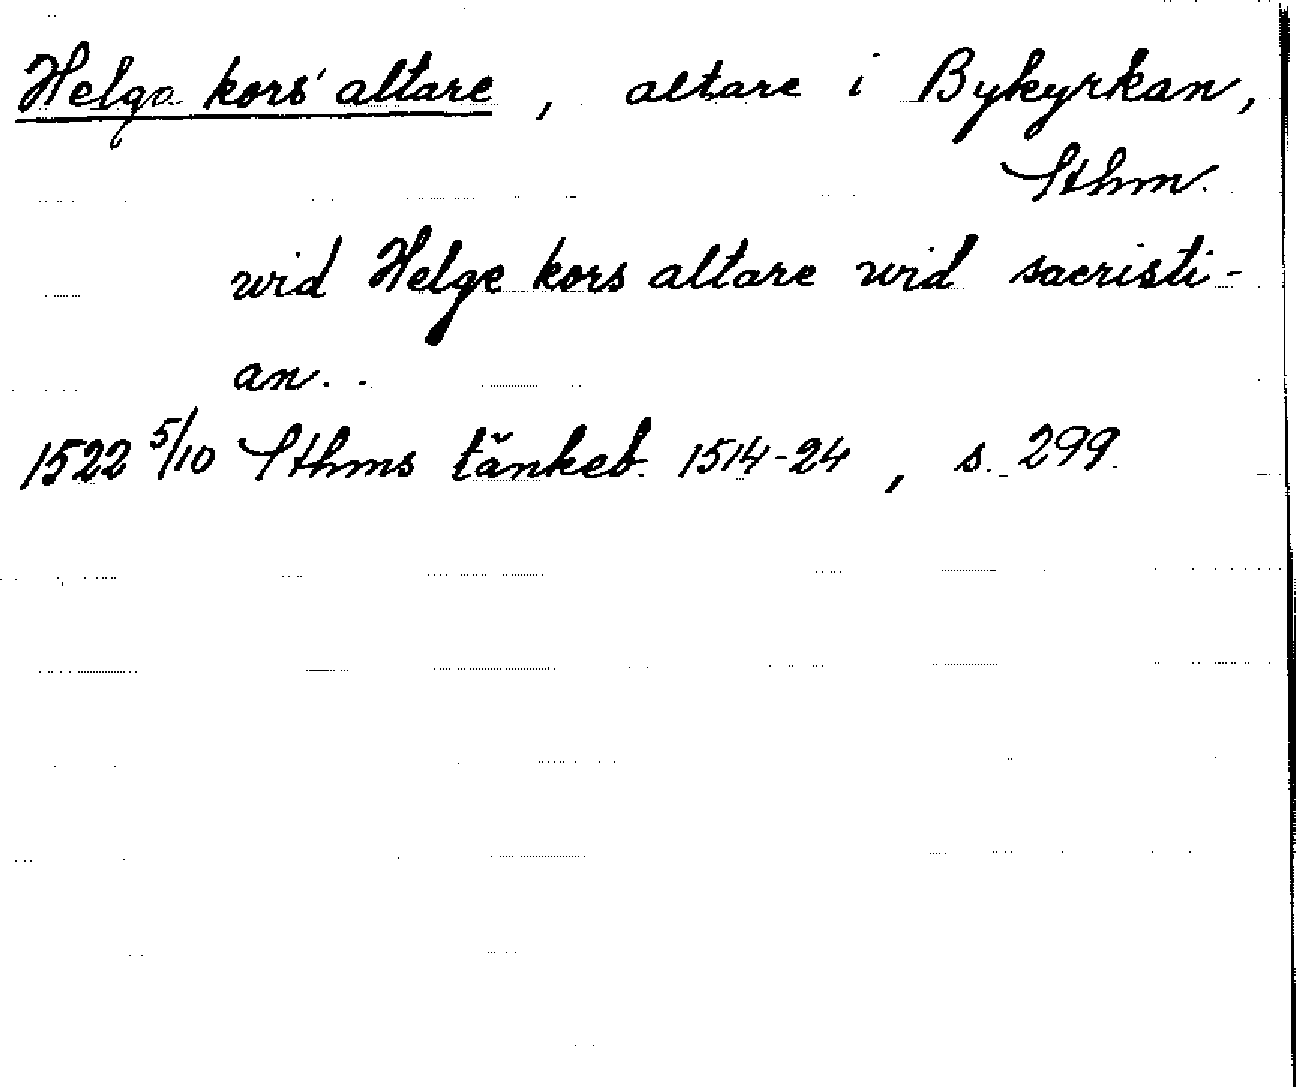 Helga kors' altare, altare i Bykyrkan,
Sthm.
wid Helge kors altare wid sacristi-
an. .
1522 5/10 Sthms tänkeb. 1514-24, s. 299.